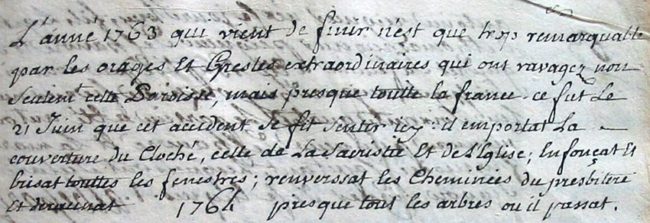 L'anné 1763 qui vient de finir n'est que trop remarquable
par les orages Et Gresles extraordinaires qui ont ravagez non
seulemt cette Paroisse, mais presque toutte la france. ce fut Le
21 Juin que cet accident se fit sentir icy: il emportat La
couverture du Cloché, celle de La Sacristie Et de L'Eglise; Enfonçat Et
brisat touttes les fenestres; renverssat les Cheminées du presbitère
et deracinat 1764 presque tous les arbres ou il passat.